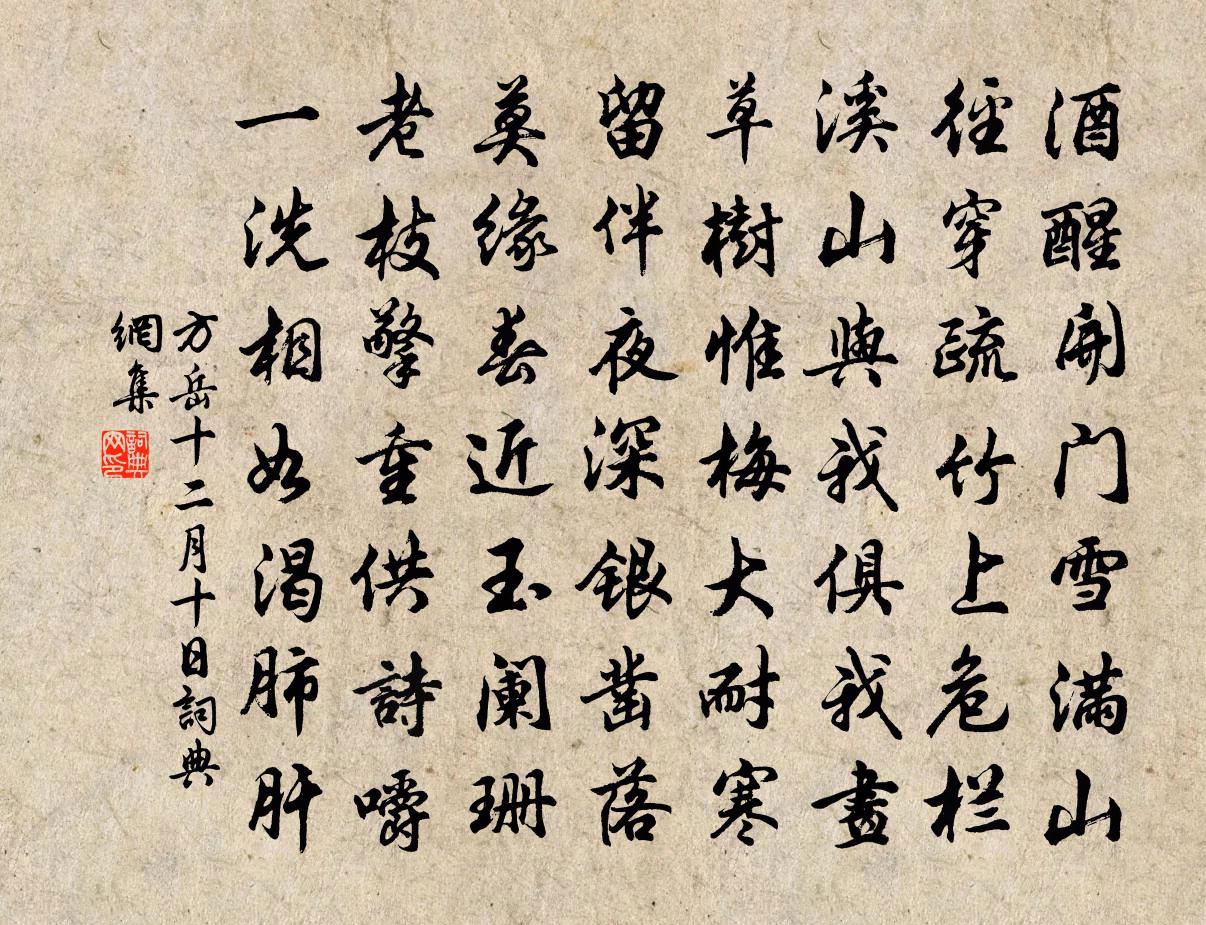 酒醒開门雪满山
徑穿疏竹上危栏
溪山與我俱我畫
草樹惟梅大耐寒
留伴夜深銀凿落
莫缘春近玉阑珊
老枝擎重供詩嚼
一洗相如渴肺肝
方岳十二月十日詞典
網集
詞典
网印